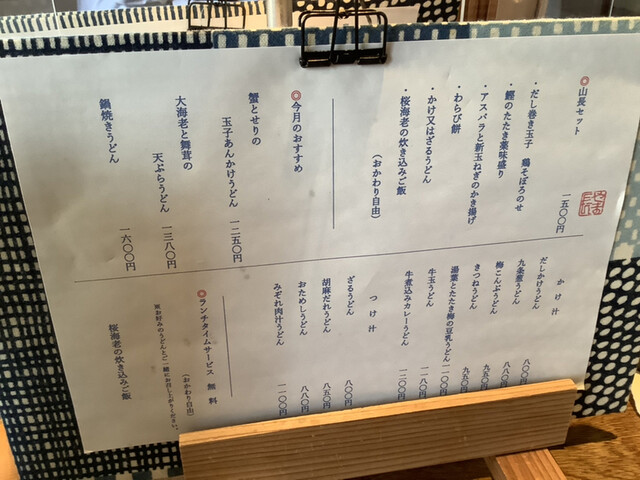 ◎山長セット
・だし巻き玉子　鶏そぼろのせ
・鰹のたたき薬味盛り
・アスパラと新玉ねぎのかき揚げ
・わらび餅
・かけ又はざるうどん
・桜海老の炊き込みご飯
（おかわり自由）
一五〇〇円
◎今月のおすすめ
蟹とせりの
玉子あんかけうどん　一二五〇円
大海老と舞茸の
天ぷらうどん　一三八〇円
鍋焼きうどん　一六〇〇円
かけ汁
だしかけうどん　八〇〇円
九条葱うどん　八八〇円
梅こんぶうどん　九五〇円
きつねうどん　九五〇円
湯葉とたたき梅の豆乳うどん　一一〇〇円
牛玉うどん　一一八〇円
牛煮込みカレーうどん　一二〇〇円
つけ汁
ざるうどん　八〇〇円
胡麻だれうどん　八五〇円
おためしうどん　八八〇円
みぞれ肉汁うどん　一二〇〇円
◎ランチタイムサービス　無料
（おかわり自由）
※お好みのうどんとご一緒にお召し上がりください。
桜海老の炊き込みご飯